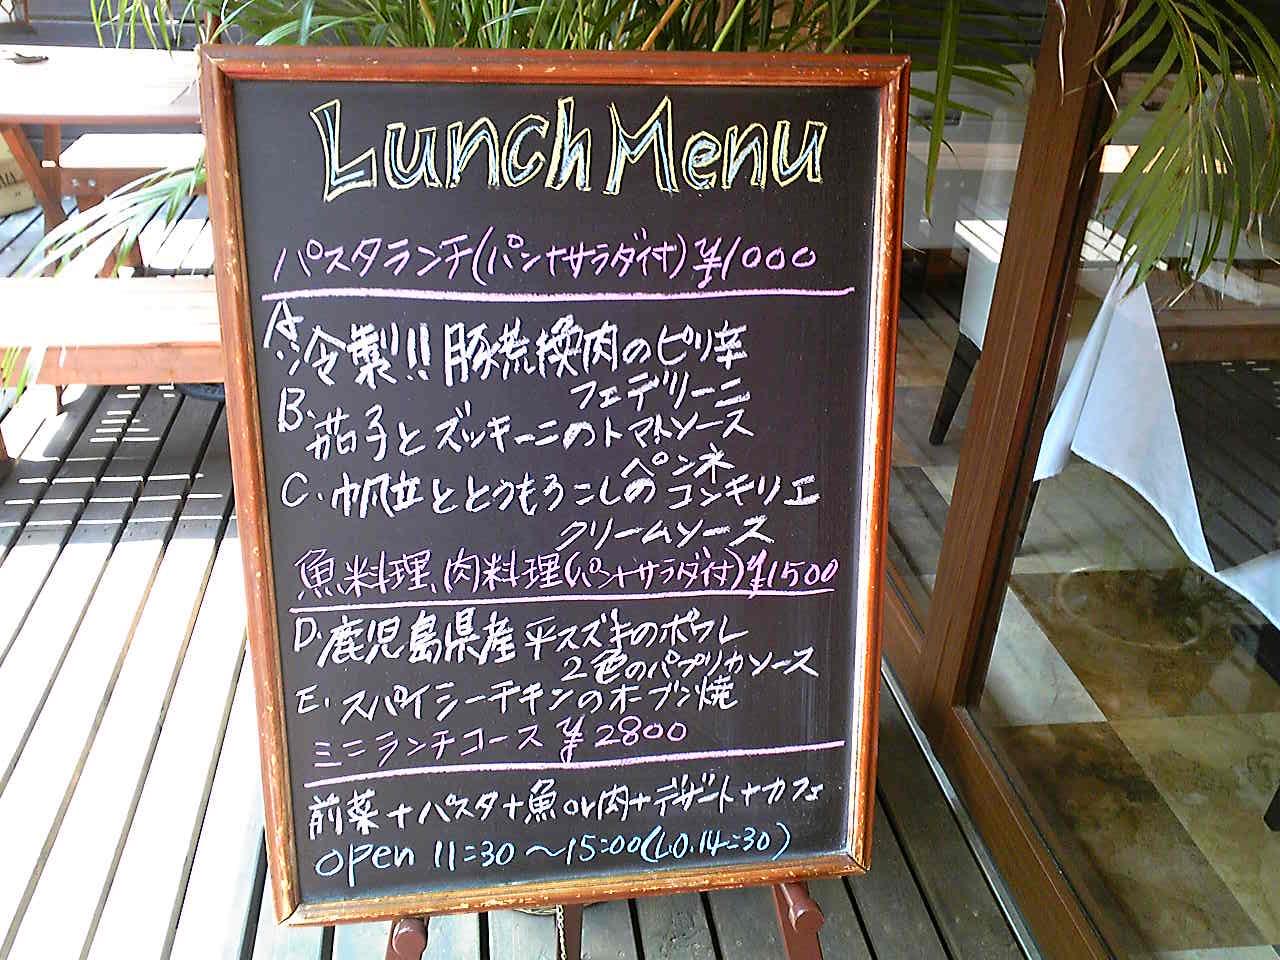 Lunch Menu
パスタランチ(パン+サラダ付)¥1000
A. 冷製!!豚荒挽肉のピリ辛
フェデリーニ
B. 茄子とズッキーニのトマトソース
ペンネ
C. 帆立ととうもろこしのコンキリエ
クリームソース
魚料理、肉料理(パン+サラダ付)¥1500
D. 鹿児島県産平スズキのポワレ
2色のパプリカソース
E. スパイシーチキンのオーブン焼
ミニランチコース ¥2800
前菜+パスタ+魚or肉+デザート+カフェ
open 11:30 〜15:00(L.O.14:30)